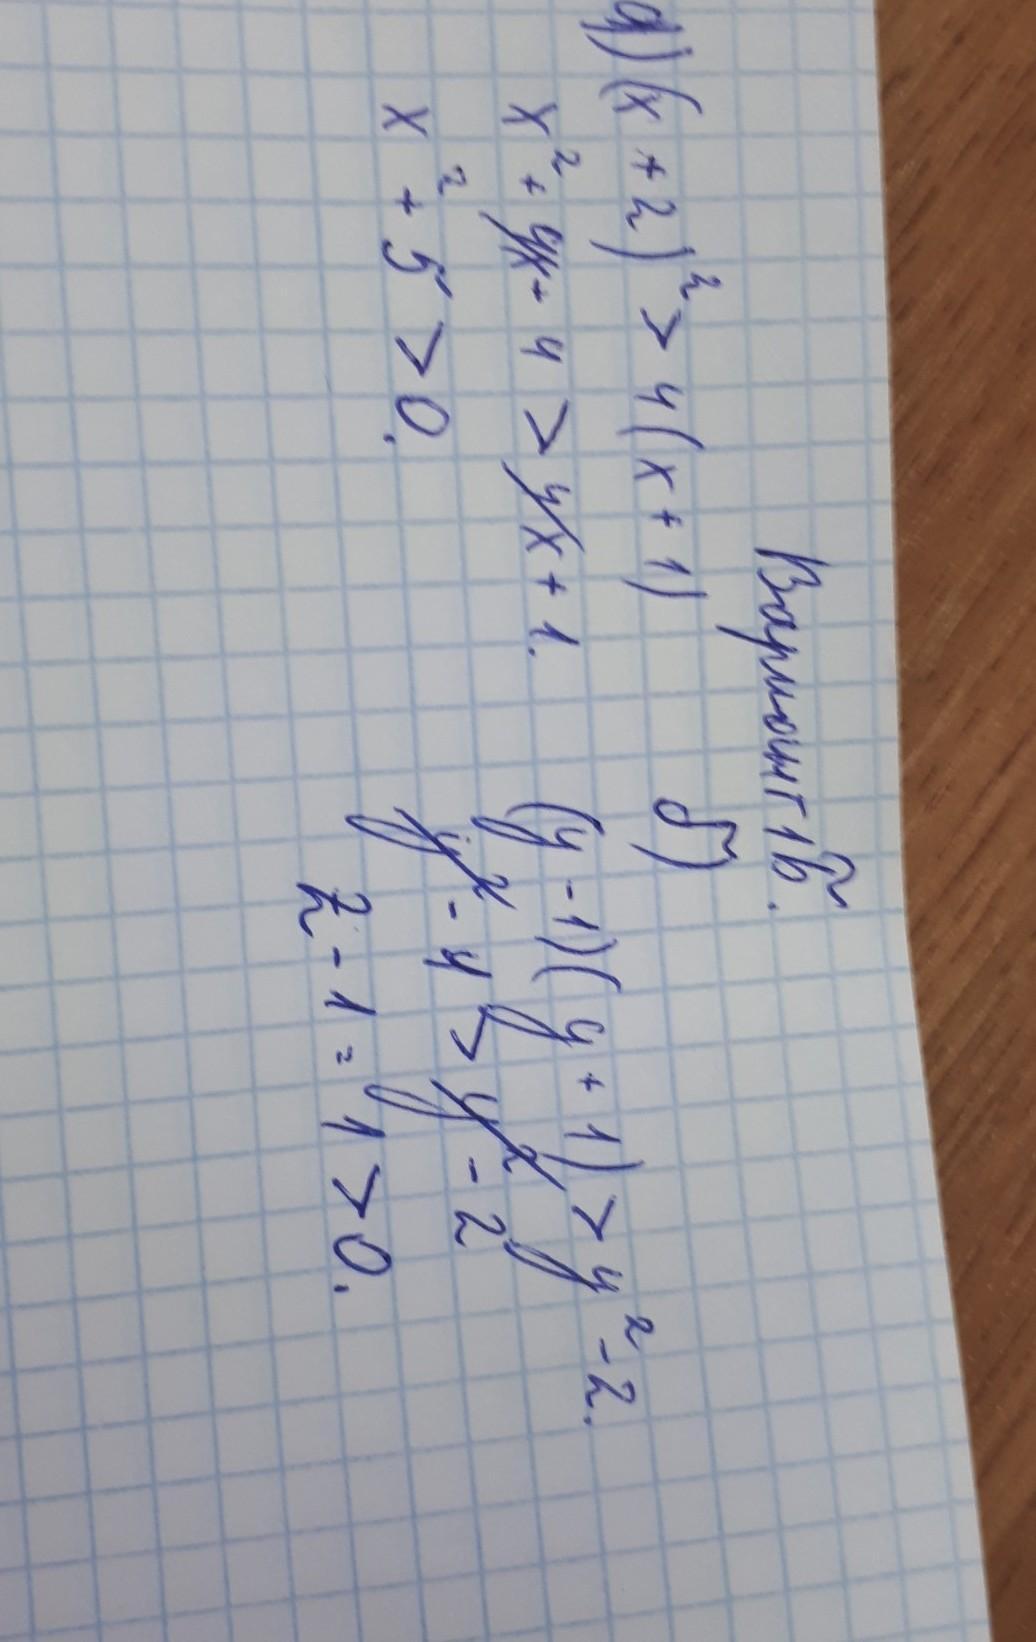 Вариант 1й.
а) (x + 2)² > 4(x + 1)
x² + 4x + 4 > 4x + 1.
x² + 5 > 0.
б)
(y - 1)(y + 1) > y² - 2.
y² - y > y² - 2
2 - 1 = 1 > 0.